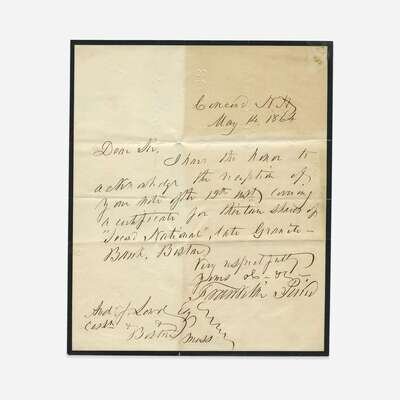 Concord N.H.
May 14. 1864
Dear Sir.
I have the honor to
acknowledge the reception of
your note of the 12th inst, covering
a certificate for thirteen shares of
National, late Granite
Bank, Boston
Very respectfully
Yours &c - &c -
Franklin Pierce
And. J. Lord Esq
Cash. &c
Boston Mass